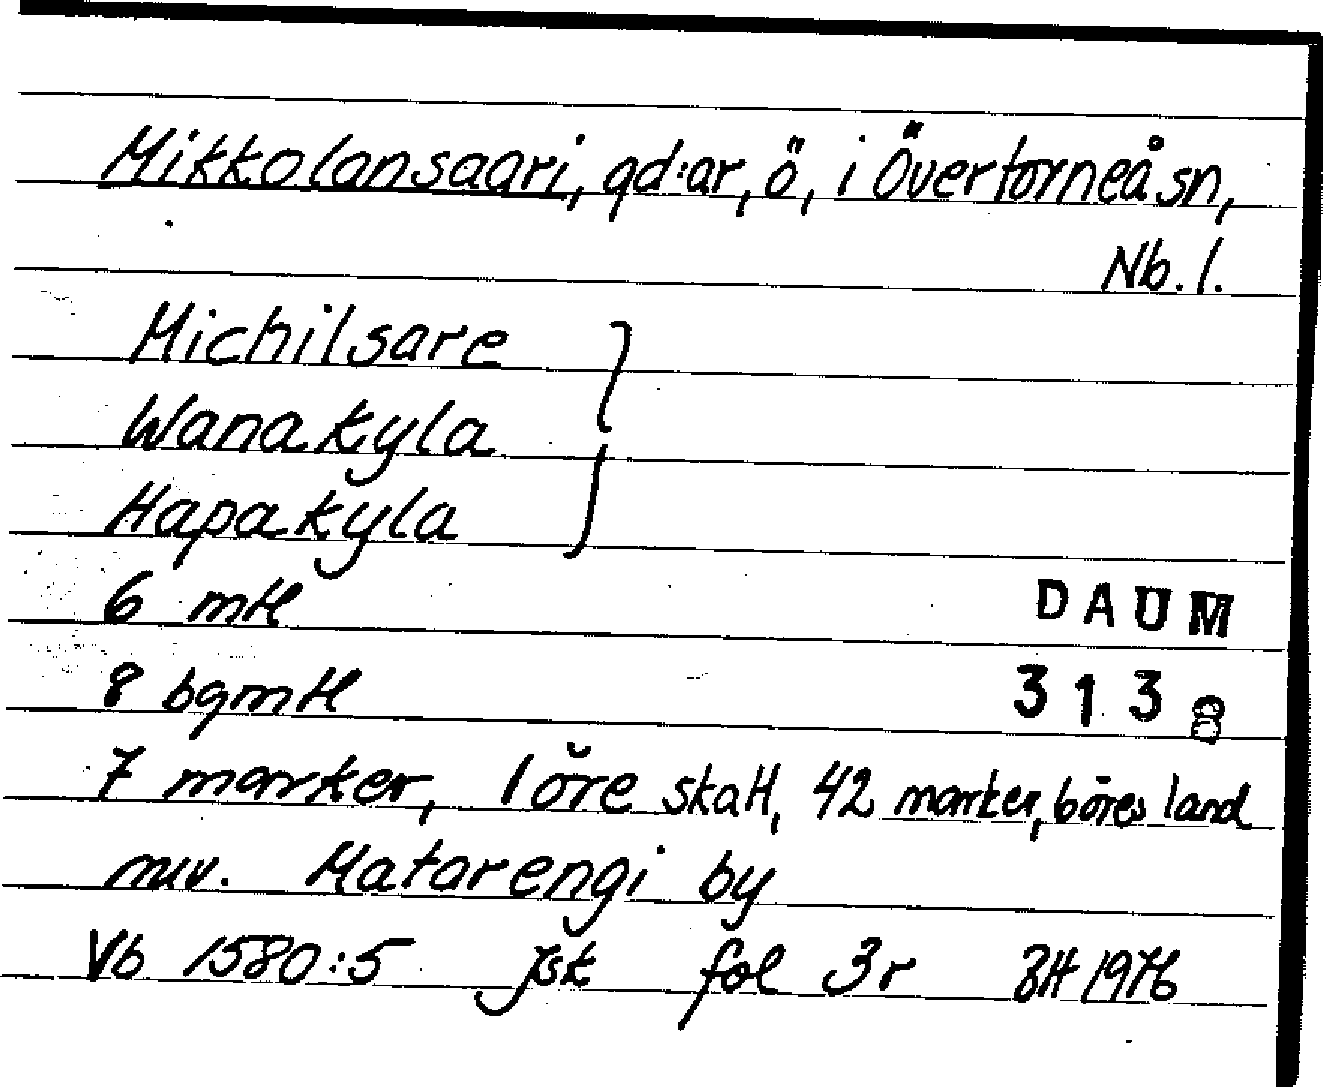 Mikkolansaari, gd:ar, ö, i Övertorneå sn,
Nb. l.
Michilsare
Wanakyla
Hapakyla
6 mtl
8 bgmtl
DAUM
3138
7 marker, 1 öre skatt, 42 marker, böres land
nuv. Matarengi by
Vb 1580:5 jsk fol 3r BH 1976